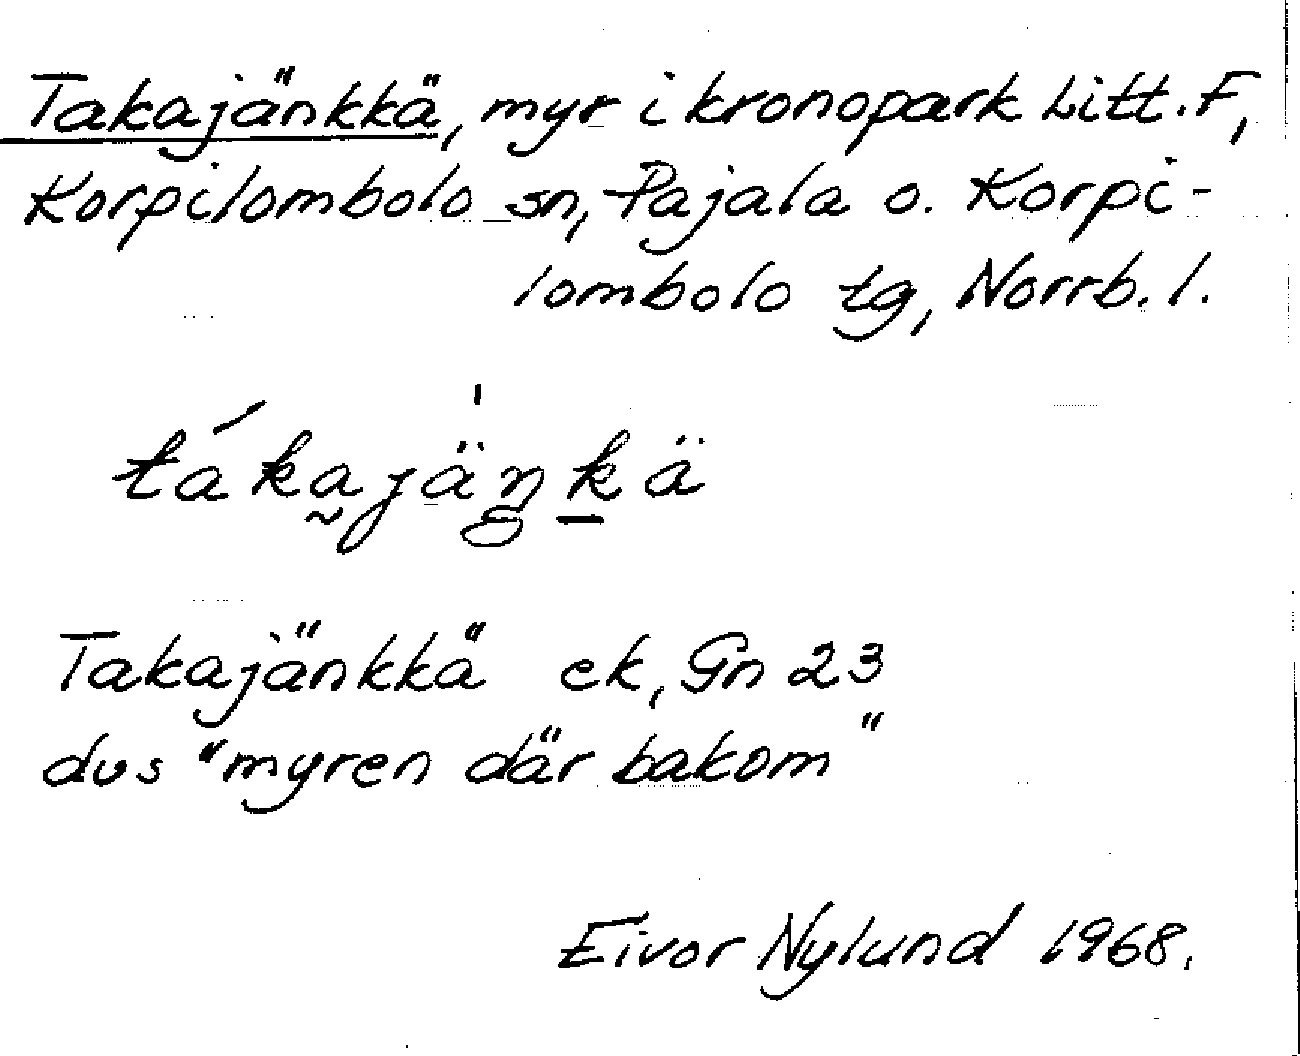 Takajänkkä, myr i kronopark Litt. F,
Korpilombolo sn, Pajala o. Korpi-
lombolo tg, Norrb. l.
táka̰jäŋḵä
Takajänkkä ek, Gn 23
dvs "myren där bakom"
Eivor Nylund 1968.